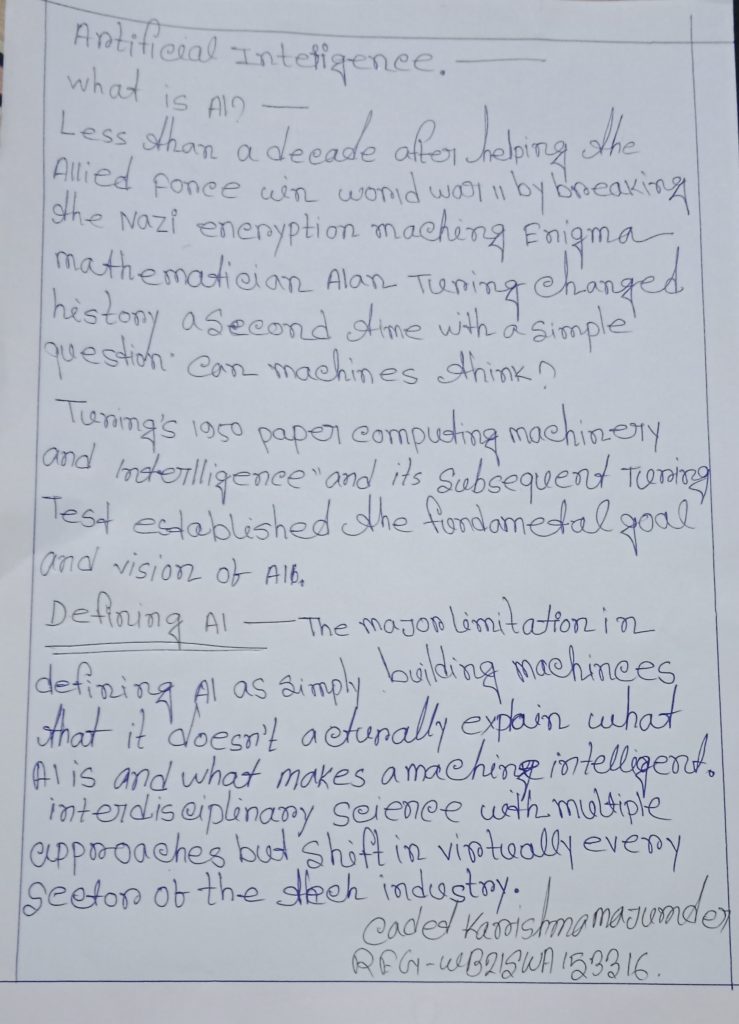 Artificial Inteligence. —
what is AI? —
Less than a decade after helping the
Allied force win world war II by breaking
the Nazi encryption maching Enigma
mathematician Alan Turing changed
history a second time with a simple
question. Can machines think?
Turing's 1950 paper computing machinery
and Interlligence" and its subsequent Turing
Test established the fundametal goal
and vision of AI.
Defining AI — The major limitation in
defining AI as simply building machinees
that it doesn't acturally explain what
AI is and what makes a maching intelligent.
interdisciplinary science with multiple
approaches but shift in virtually every
Sector of the tech industry.
Caded Karrishma majumder
REG-WB21SWA153316.